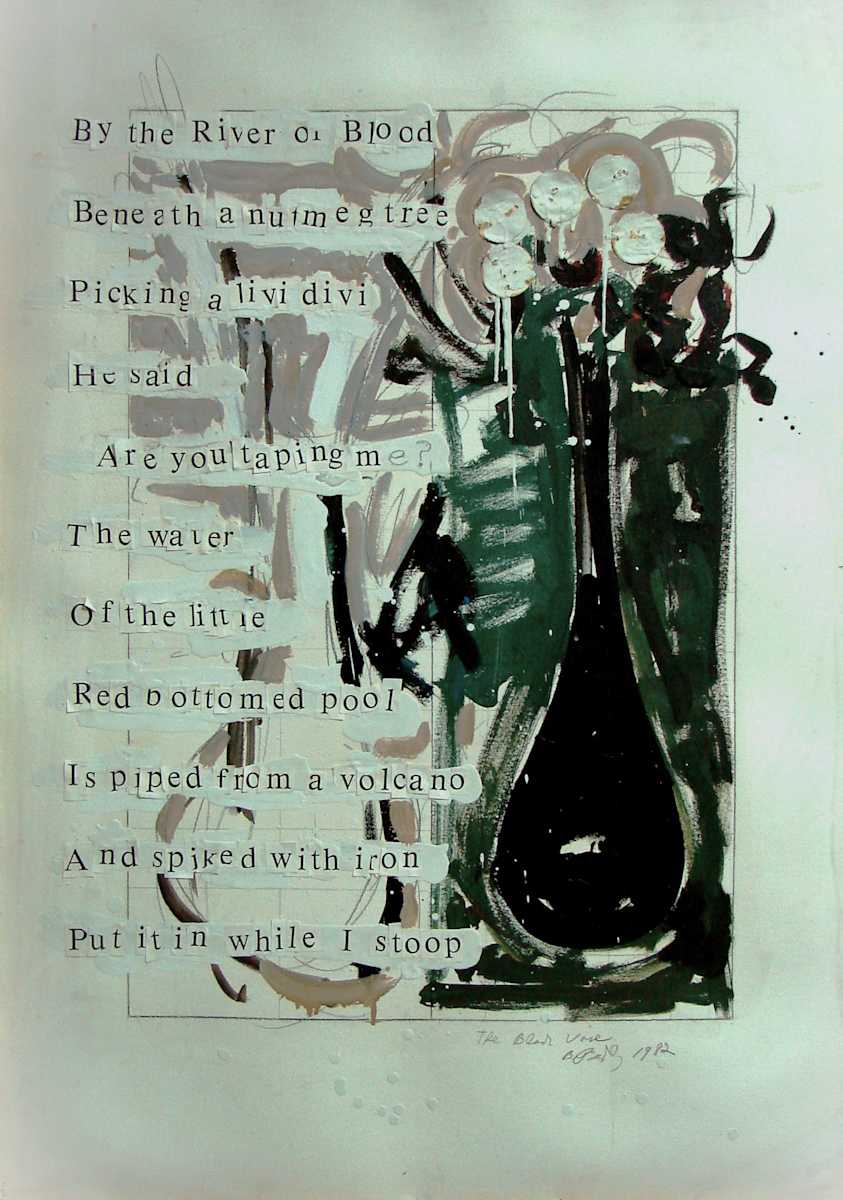 By the River of Blood
Beneath a nutmeg tree
Picking a livi divi
He said
Are you taping me?
The water
Of the little
Red bottomed pool
Is piped from a volcano
And spiked with iron
Put it in while I stoop
The Black Vase
1982